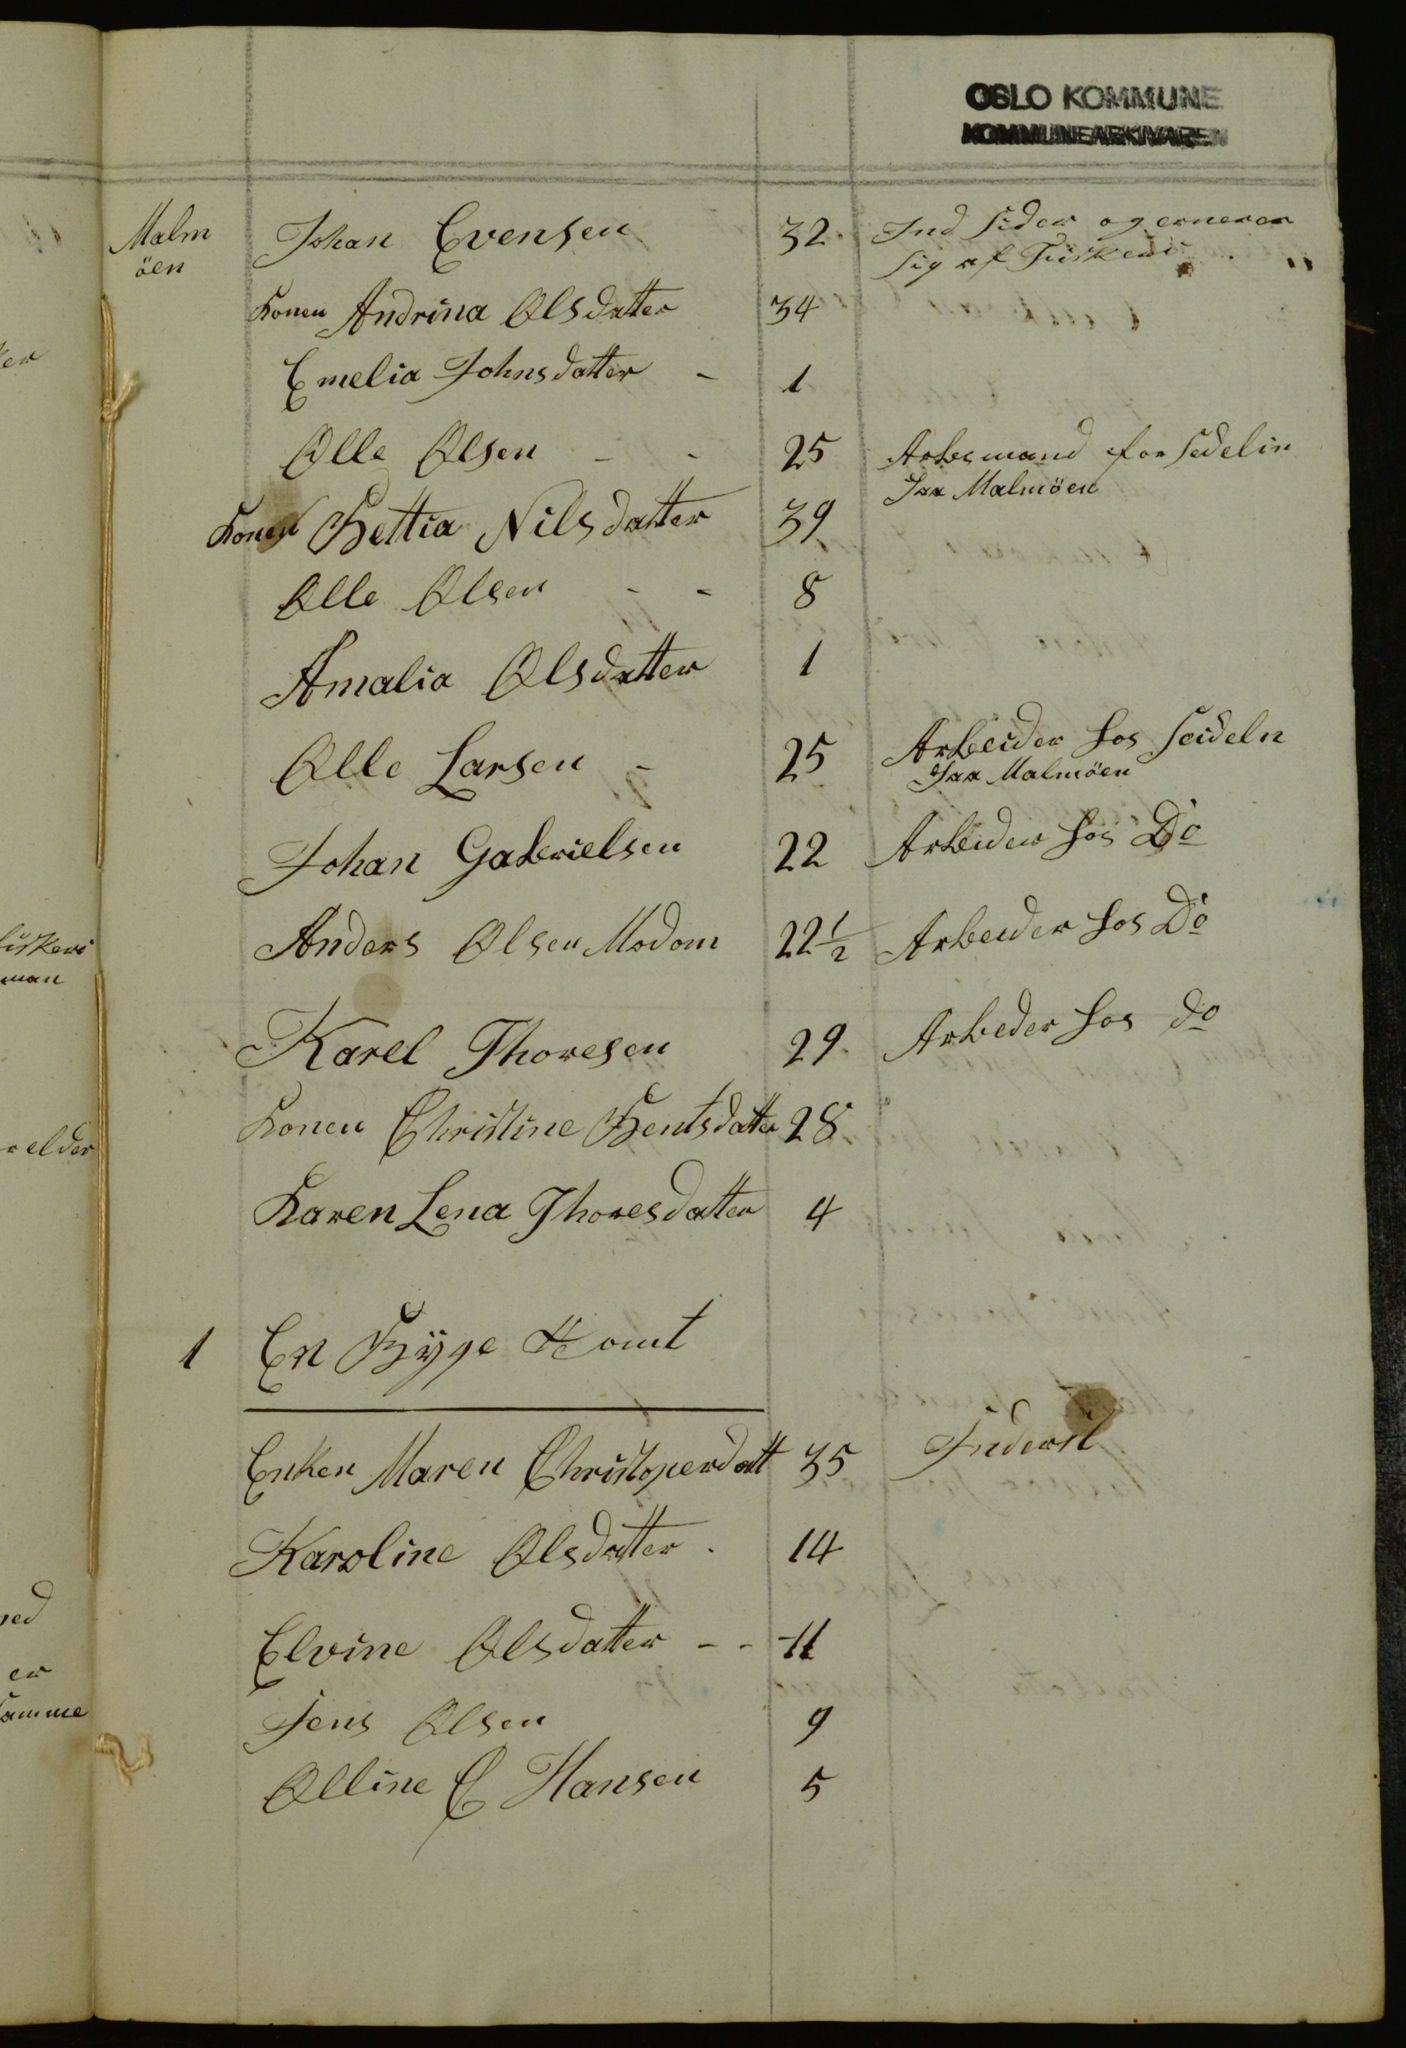 OSLO KOMMUNE
KOMMUNEARKIVAREN
Malm
öen
Johan Evensen 32 Ind sider og ernerer
sig af Fiskeri
Konen Andrina Olsdatter 34
Emelia Johnsdatter - 1
Olle Olsen - - 25 Arbesmand for Sedelin
Paa Malmöen
Konen Bettia Nilsdatter 39
Olle Olsen - - 8
Amalia Olsdatter 1
Olle Larsen - 25 Arbeider hos Seideln
Paa Malmöen
Johan Gabrielsen 22 Arbeider hos Do
Anders Olsen Modom 22 1/2 Arbeider hos Do
Karel Thoresen 29 Arbeder hos do
Konen Christine Bentsdatter 28
Karen Lena Thoresdatter 4
1 En Byge Tomt
Enken Maren Christoperdatt 35 Inderst
Karoline Olsdatter . 14
Elvine Olsdatter - - 11
Jens Olsen 9
Olline C Hansen 5
fiskeri
man
elder
ned
er
samme